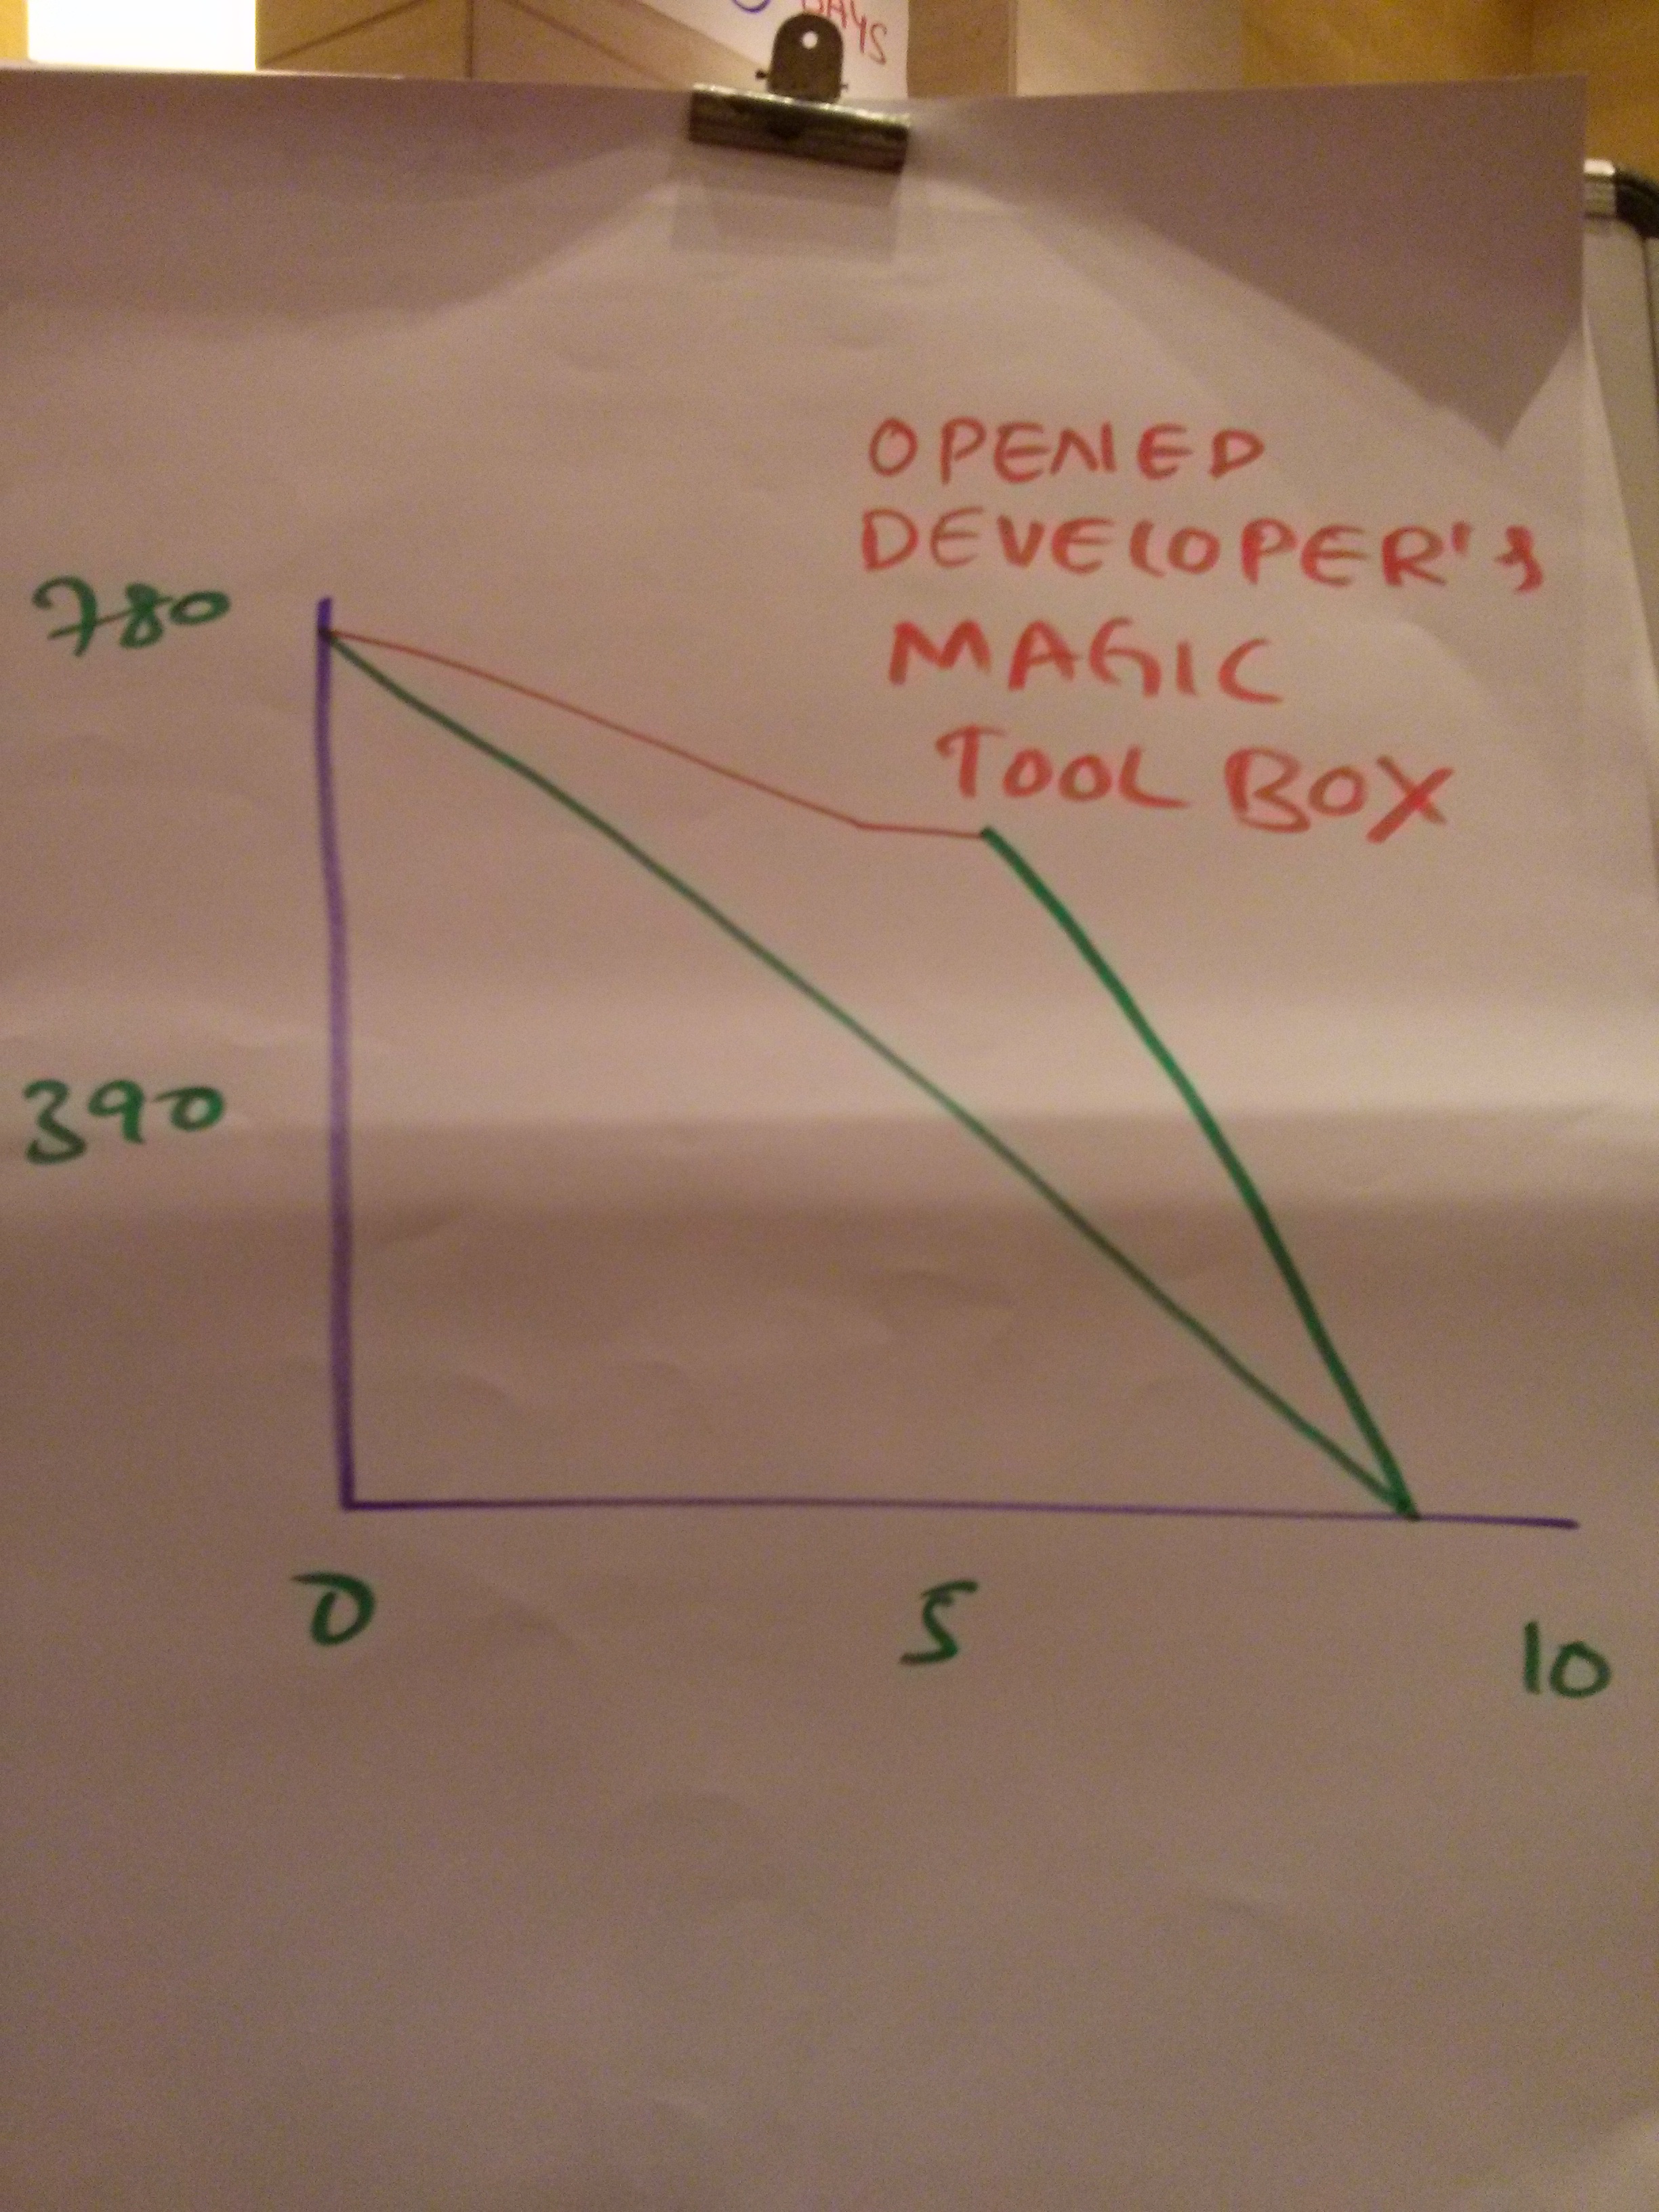 DAYS
OPENED
DEVELOPER'S
MAGIC
TOOL BOX
780
390
0 5 10